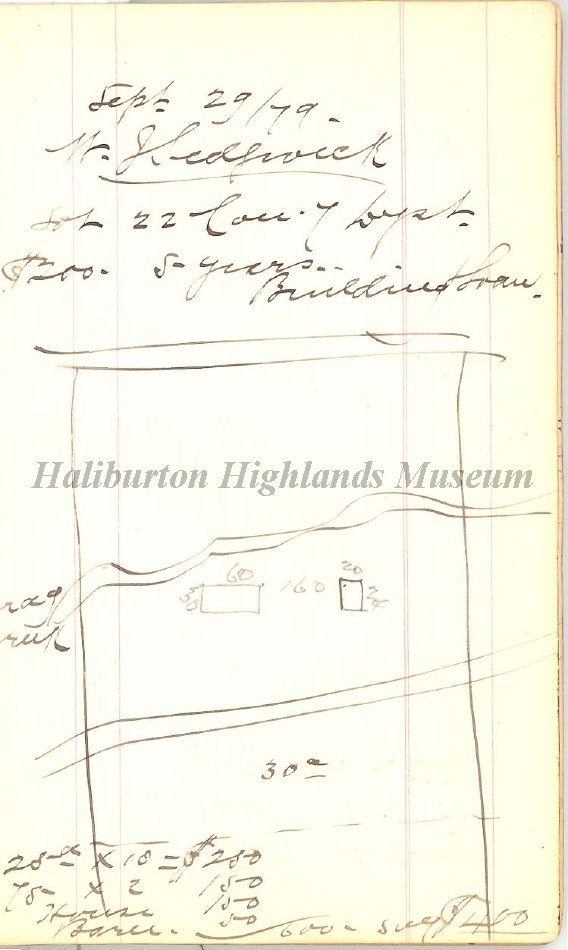 Sept 29/79.
W. J Sedgwick
Lot 22 Con. 7 Dys't.
$200. 5 years..
Building Loan.
Haliburton Highlands Museum
60
160
20
30
24
30 a
28 a x 10 = $280
75 x 2 150
House 150
Barn. 50
600. $400